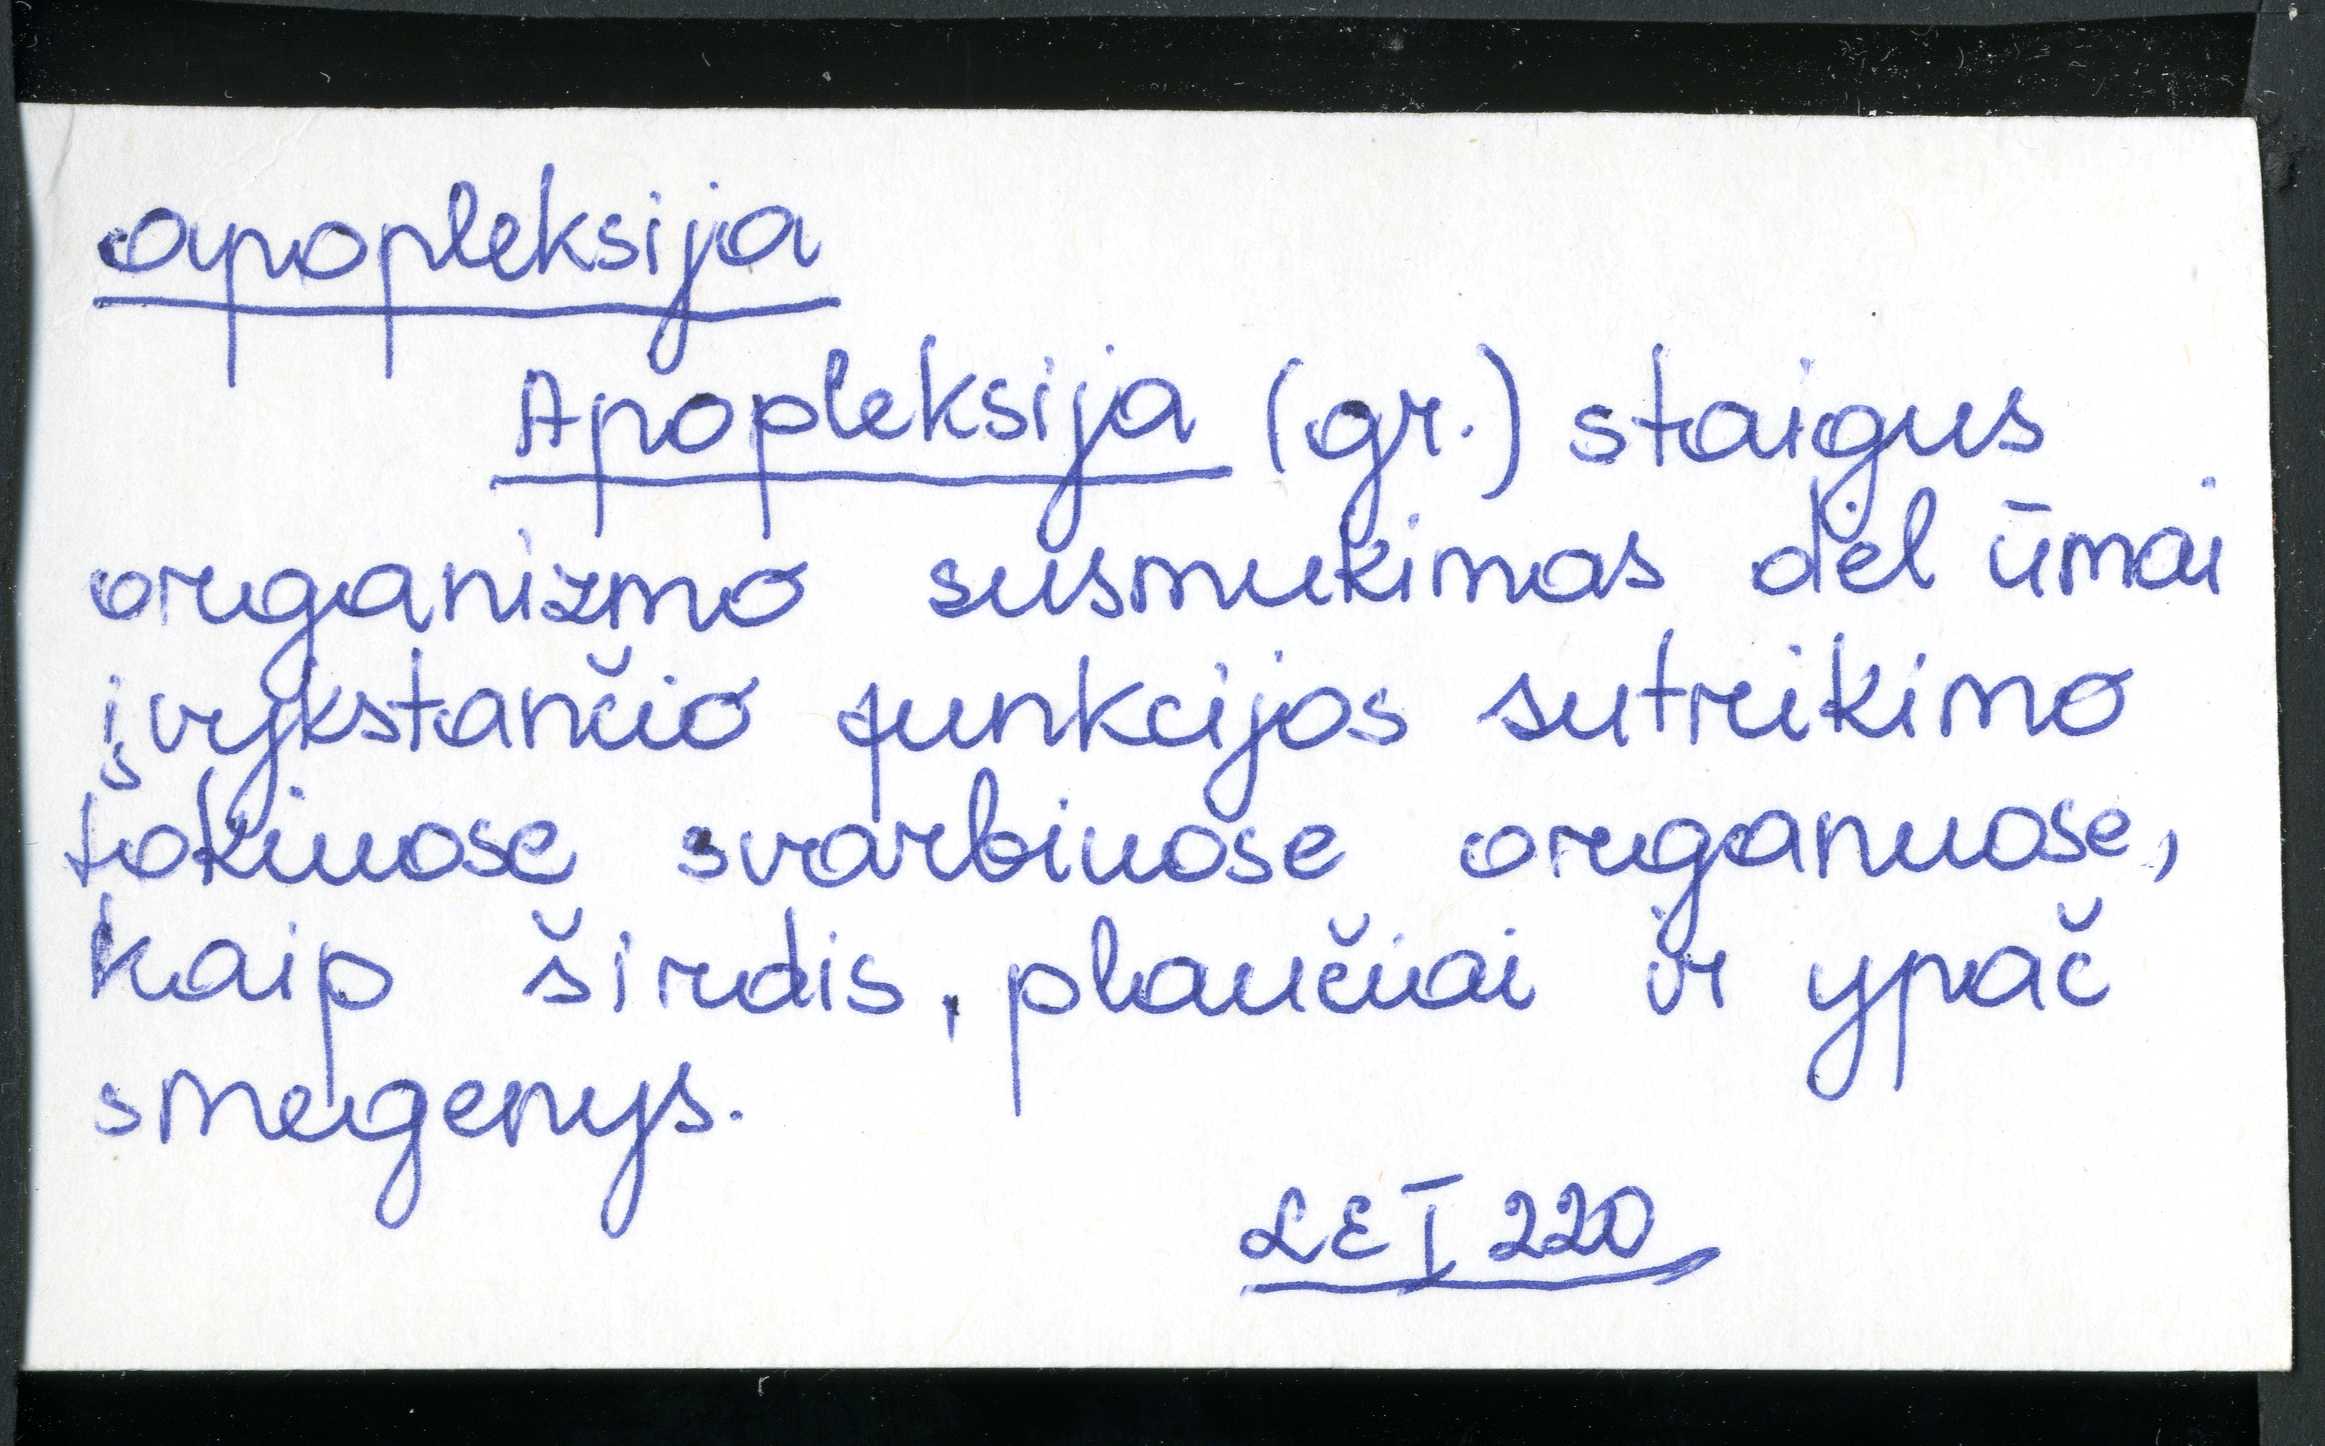 apopleksija
Apopleksija (gr.) staigus
organizmo susmukimas dėl ūmai
įvykstančio funkcijos sutrikimo
tokiuose svarbiuose organuose,
kaip širdis, plaučiai ir ypač
smegenys.
LE I 220